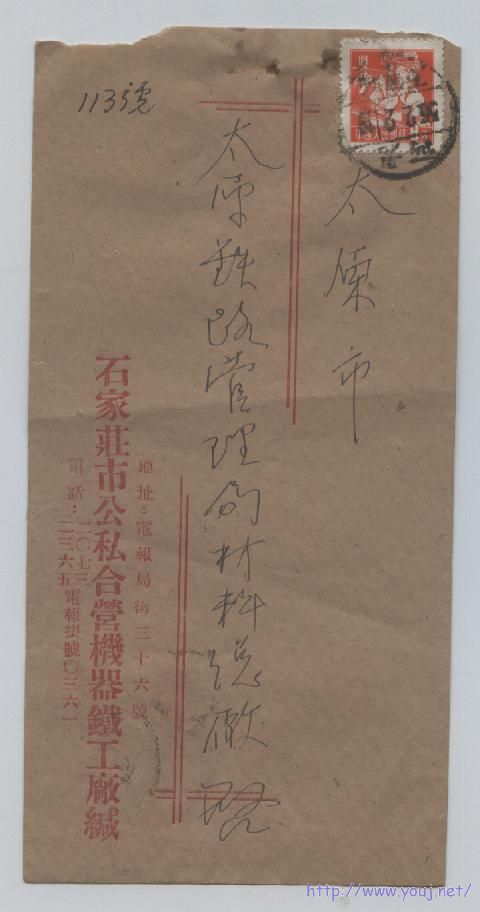 113號
太原市
太原鉄路管理局材料總廠啓
地址：電報局街三十六號
石家莊市公私合營機器鐵工廠緘
電話：二〇七三
二三六五
電報掛號〇三六一
http://www.youj.net/